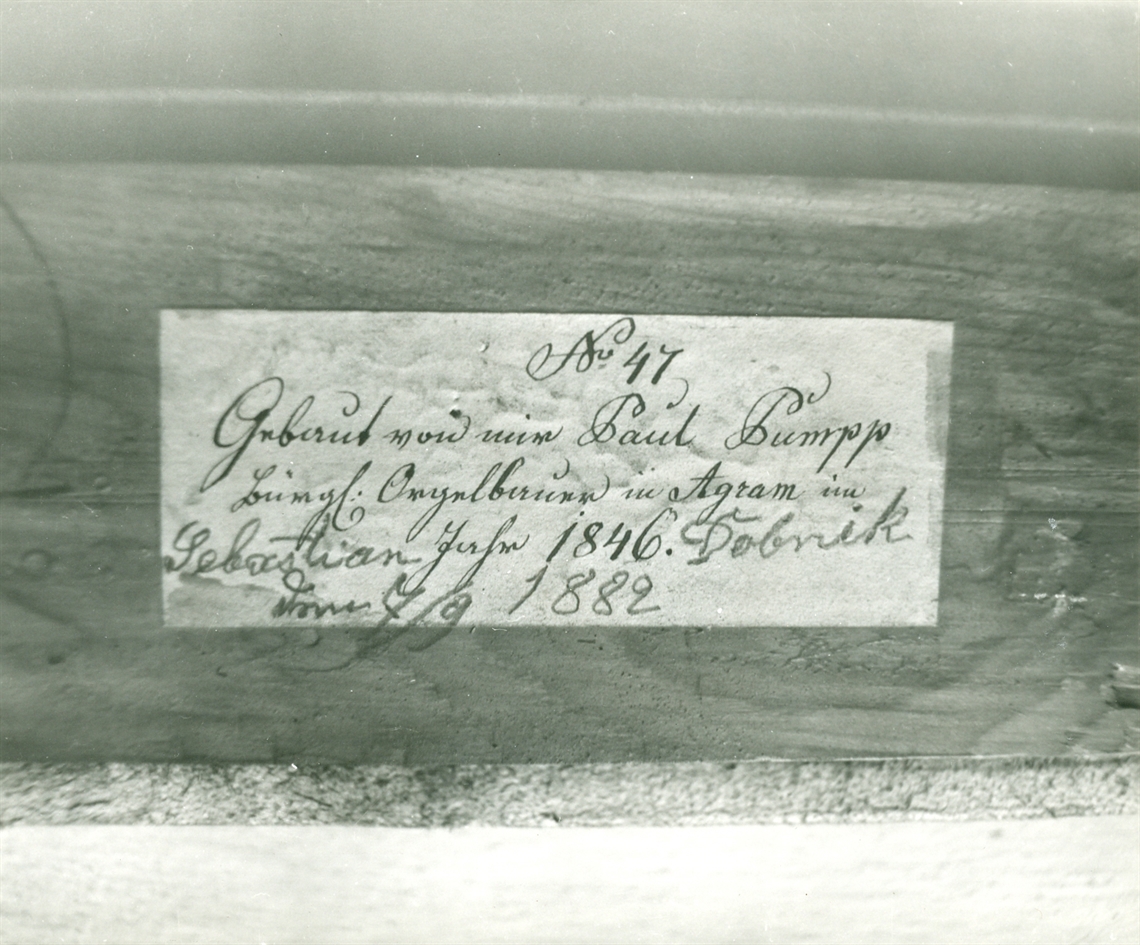 No 47
Gebaut von mir Paul Pumpp
bürgl: Orgelbauer in Agram im
Jahr 1846.
Sebastian Dobnik
7/9 1882